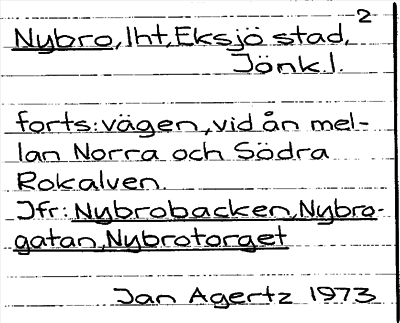 2
Nybro, lht, Eksjö stad,
Jönk.l.
forts: vägen, vid ån mel-
lan Norra och Södra
Rokalven.
Jfr: Nybrobacken, Nybro-
gatan, Nybrotorget
Jan Agertz 1973